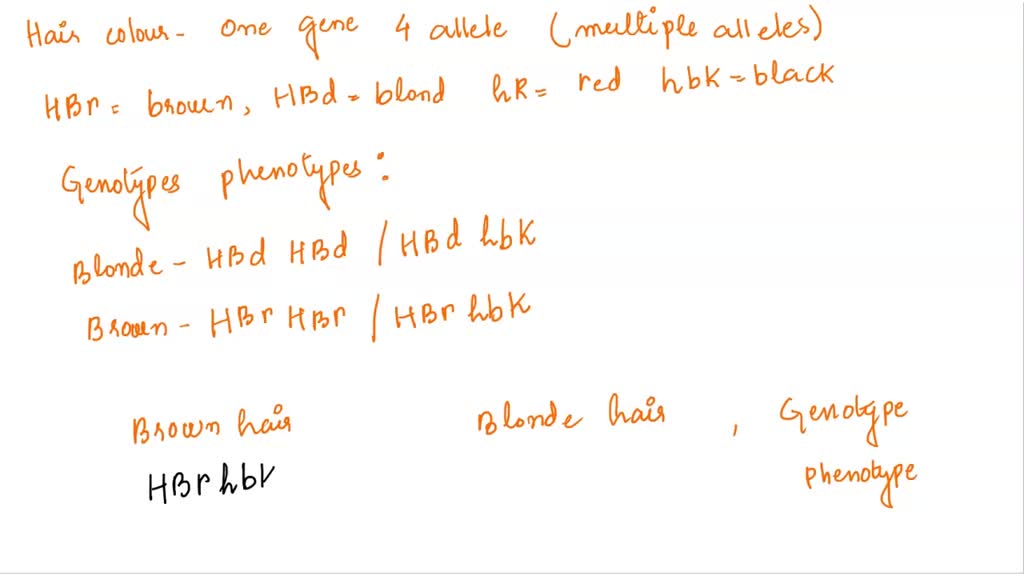 Hair colour - one gene 4 allele (multiple alleles)
HBr = brown, HBd = blond hR = red hbK = black
Genotypes phenotypes :
Blonde - HBd HBd / HBd hbK
Brown - HBr HBr / HBr hbK
Brown hair Blonde hair , Genotype
HBr hbK phenotype